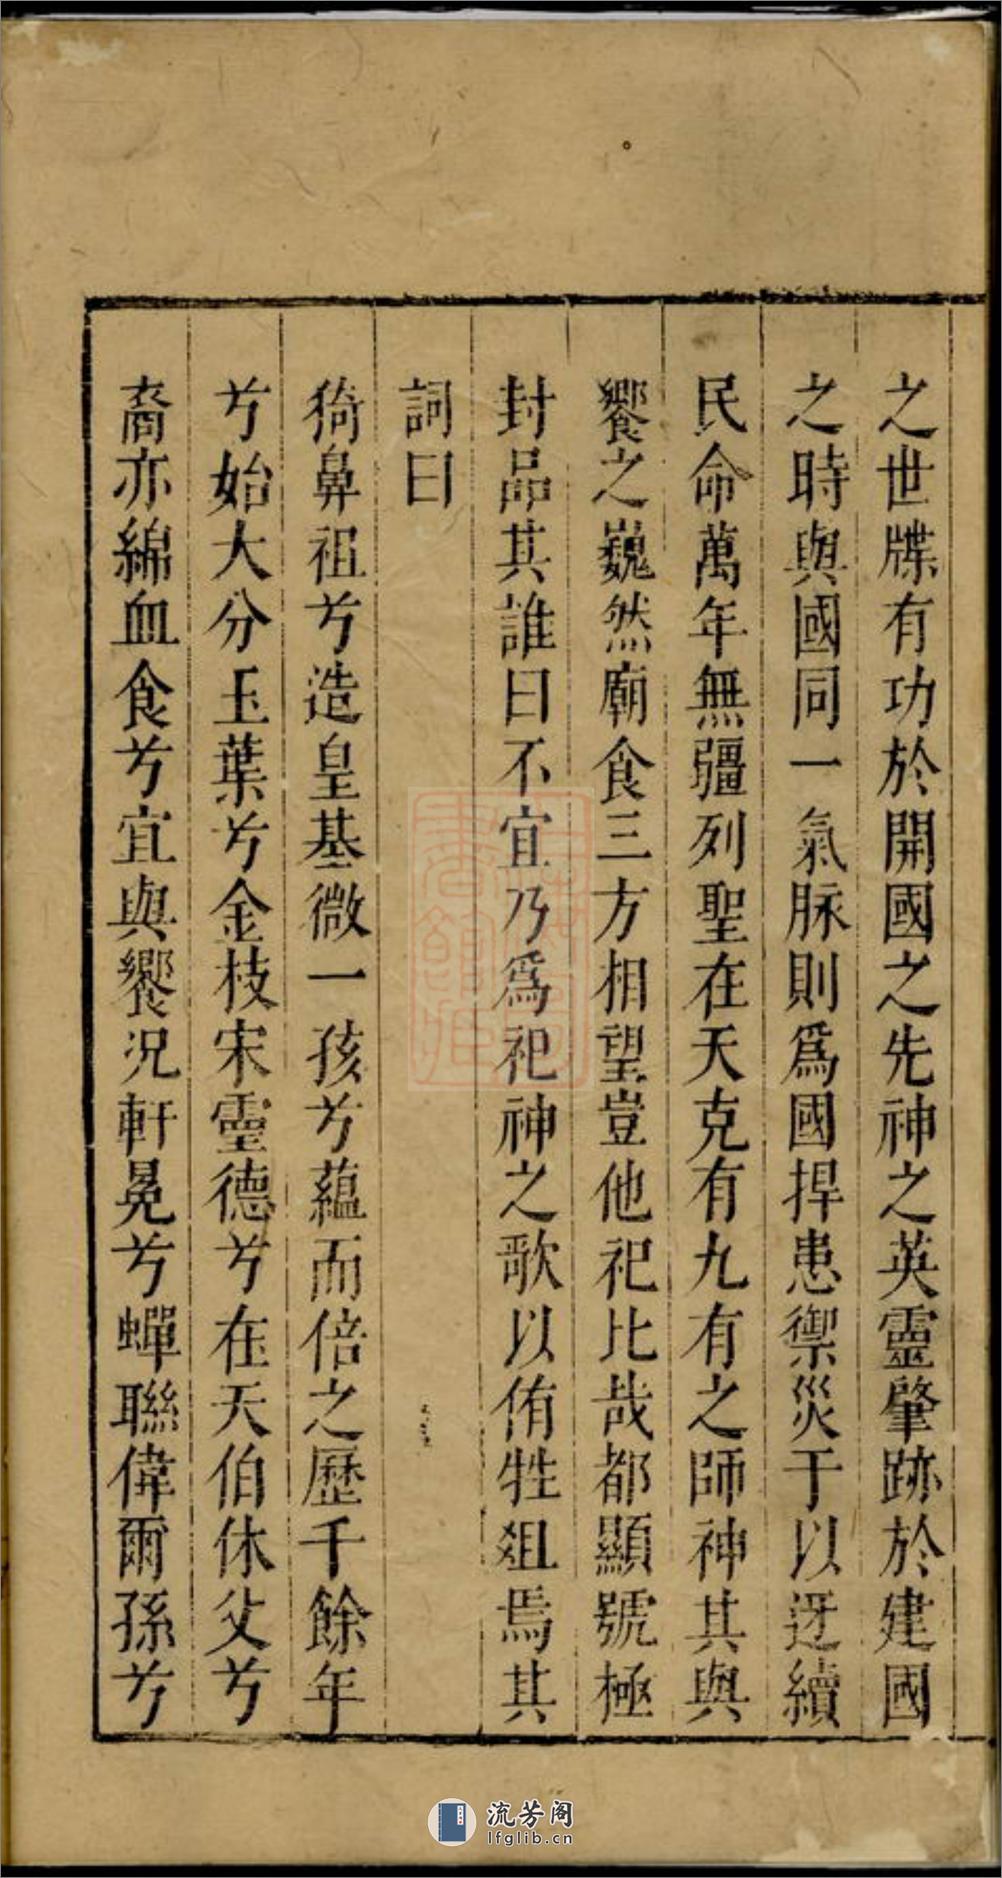 之世牒有功於開國之先神之英靈肇跡於建國
之時與國同一氣脉則爲國捍患禦災于以迓續
民命萬年無疆列聖在天克有九有之師神其與
饗之巍然廟食三方相望豈他祀比哉都顯號極
封品其誰曰不宜乃爲祀神之歌以侑牲俎焉其
詞曰
猗鼻祖兮造皇基微一孩兮蘊而倍之歷千餘年
兮始大分玉葉兮金枝宋靈德兮在天伯休父兮
裔亦綿血食兮宜與饗況軒冕兮蟬聯偉爾孫兮
流芳阁
lfglib.cn